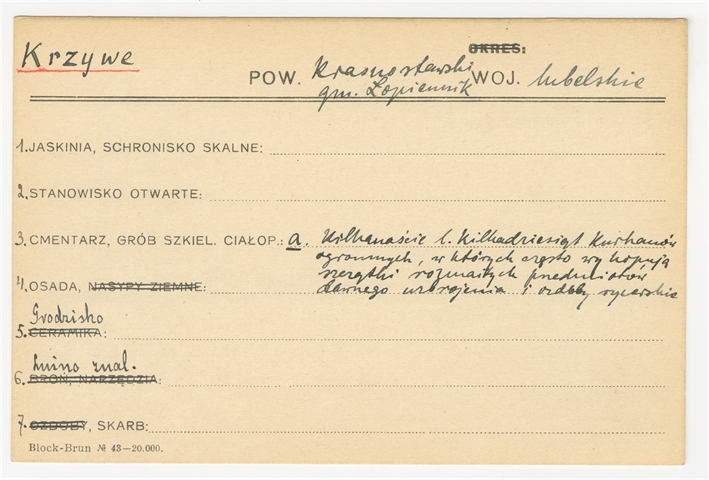 Krzywe
OKRES:
POW. Krasnostawski WOJ. lubelskie
gm. Łopiennik
1. JASKINIA, SCHRONISKO SKALNE:
2. STANOWISKO OTWARTE:
3. CMENTARZ, GRÓB SZKIEL. CIAŁOP.: a. Kilkanaście l. Kilkadziesiąt Kurhanów
ogromnych, w których często wykopują
szczątki rozmaitych przedmiotów
4. OSADA, NASYPY ZIEMNE: dawnego uzbrojenia i ozdoby rycerskie
Grodzisko
5. CERAMIKA:
Luźno znal.
6. BROŃ, NARZĘDZIA:
7. OZDOBY, SKARB:
Block-Brun № 43—20.000.